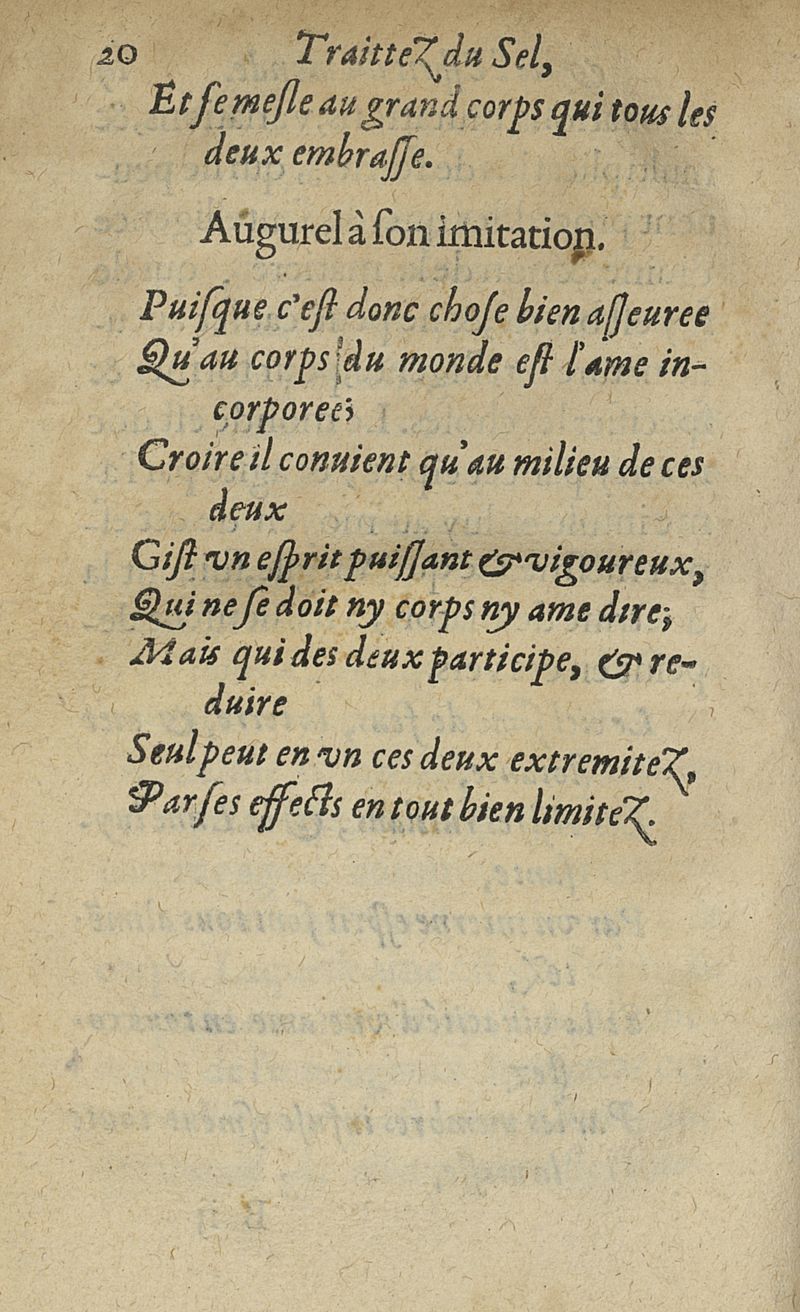 20 Traittez du Sel,
Et ſe meſle au grand corps qui tous les
deux embraſſe.
Augurel à ſon imitation.
Puiſque c'eſt donc choſe bien aſſeuree
Qu'au corps du monde eſt l'ame in-
corporee;
Croire il conuient qu'au milieu de ces
deux
Giſt vn eſprit puiſſant & vigoureux,
Qui ne ſe doit ny corps ny ame dire;
Mais qui des deux participe, & re-
duire
Seul peut en vn ces deux extremitez,
Par ſes effects en tout bien limitez.